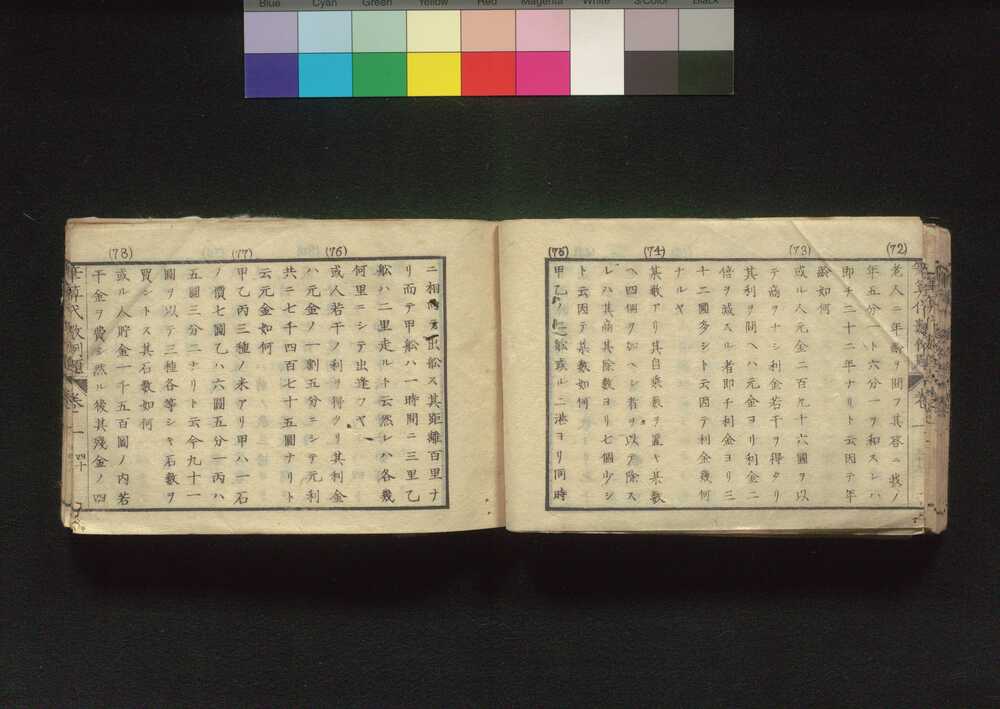 Blue Cyan Green Yellow Red Magenta White 3/Color Black
(72)
老人ニ年齡ヲ問フ其答ニ我ノ
年五分一ト六分一ヲ和スレハ
即チ二十二年ナリト云因テ年
齡如何
(73)
或ル人元金二百九十六圓ヲ以
テ商ヲナシ利金若干ヲ得タリ
其利ヲ問ヘハ元金ヨリ利金二
倍ヲ減スル者即チ利金ヨリ三
十二圓多シト云因テ利金幾何
ナルヤ
(74)
某數アリ其自乘數ヲ置キ某數
ヘ四個ヲ加ヘシ者ヲ以テ除ス
レハ其商其除數ヨリ七個少シ
ト云因テ其數如何
(75)
甲乙ノ二舩或ル二港ヨリ同時
ニ相向テ出舩ス其距離百里ナ
リ而テ甲舩ハ一時間ニ三里乙
舩ハ二里走ルト云然レハ各幾
何里ニシテ出逢フヤ
(76)
或人若干ノ利ヲ得タリ其利金
ハ元金ノ一割五分ニシテ元利
共ニ七千四百七十五圓ナリト
云元金如何
(77)
甲乙丙三種ノ米アリ甲ハ一石
ノ價七圓乙ハ六圓五分一丙ハ
五圓三分二ナリト云今九十一
圓ヲ以テ三種各等シキ石數ヲ
買シトス其石數如何
(78)
或ル人貯金一千五百圓ノ内若
干金ヲ費シ然ル後其殘金ノ四
筆算代數例題 卷一 四十